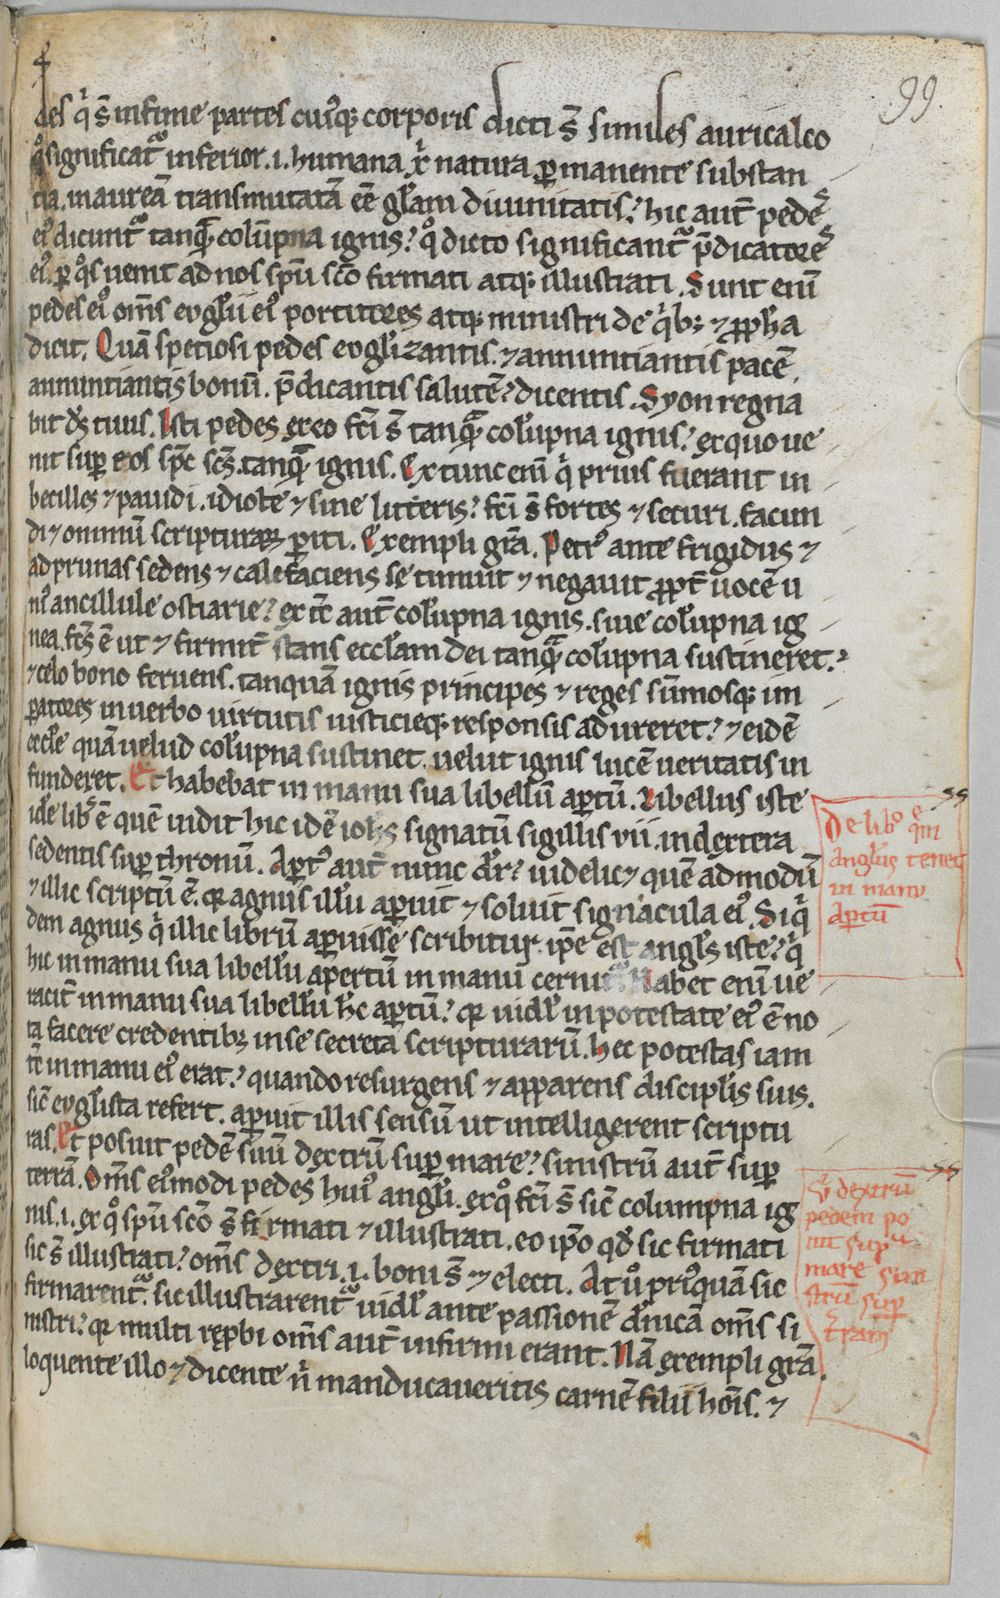 99.
des q̾ s̄ infime partes cuiꝰq; corporis dicti s̄ similes auricalco
qͦ significat᷑ inferior .i. humana xp̄i natura ꝑmanente substan
tia. in aureā transmutatā eē gl̄am diuinitatis? hic aut̄ pedes
eiꝰ dicunt᷑ tanquā colūpna ignis? qͦ dicto significant᷑ p̄dicatores
eiꝰ. ꝑ qͦs uenit ad nos spū scō firmati atq; illustrati. Sunt enī
pedes eiꝰ om̄s euglii eiꝰ portitores atq; ministri de qͥb; ⁊ ꝓph̄a
dicit. Quā speciosi pedes euglizantis. ⁊ annuntiantis pacē.
annuntiantis bonū. p̄dicantis salutē? dicentis. Syon regna
bit ds̄ tuus. Isti pedes ex eo fc̄i s̄ tanquā colūpna ignis? ex quo ue
nit super eos spc̄ scs̄. tanquā ignis. Ex tunc enī qͥ prius fuerant in
becilles ⁊ pauidi. idiote ⁊ sine litteris? fc̄i s̄ fortes ⁊ securi. facun
di ⁊ omniū scripturaꝝ ꝑiti. Exempli gr̄a. Petrꝰ ante frigidus ⁊
ad prunas sedens ⁊ calefaciens se timuit ⁊ negauit ꝓpt̄ uocē u
niꝰ ancillule ostiarie? ex tc̄ aut̄ colūpna ignis. siue colūpna ig
nea. fcs̄ ē ut ⁊ firmit̄ stans eccl̄am dei tanquā colūpna sustineret?
⁊ celo bono feruens. tanquā ignis principes ⁊ reges sūmosq; im
ꝑatores in uerbo uirtutis iusticieq; responsis adureret? ⁊ eidē
eccl̄e quā uelud colūpna sustinet. uelut ignis lucē ueritatis in
funderet. Et habebat in manu sua libellū aꝑtū. Libellus iste
idē libꝰ ē quē uidit hic idē ioh̄s signatū sigillis vii. in dextera
sedentis suꝑ thronū. Aꝑtꝰ aut̄ nunc dr̄? uidelic⁊ quē admodū
⁊ illic scriptū ē. q̄ agnus illū aꝑuit ⁊ soluit signacula eiꝰ. Siqͥ
dem agnus qͥ illic librū aꝑuisse scribitur. ip̄e est angl̄s iste? qͥ
hic in manu sua libellū apertū in manu cernit᷑. Habet enī ue
racit̄ in manu sua libellū hc̄ aꝑtū? q̄ uidl̄ in potestate eiꝰ ē no
ta facere credentib; in se secreta scripturarū. hec potestas iam
tc̄ in manu eiꝰ erat? quando resurgens ⁊ apparens discipl̄is suis.
sic̄ euglista refert. aꝑuit illis sensū ut intelligerent scriptu
ras. Et posuit pedē suū dextrū suꝑ mare? sinistrū aut̄ suꝑ
terrā. Om̄s eiꝰmodi pedes huiꝰ angl̄i. ex qͦ fc̄i s̄ sic̄ columpna ig
nis. .i. ex qͦ spū scō s̄ firmati ⁊ illustrati. eo ip̄o qđ sic firmati
sic s̄ illustrati? om̄s dextri .i. boni s̄ ⁊ electi. At uͦ prꝰquā sic
firmarent᷑. sic illustrarent᷑ uidl̄ ante passionē dn̄icā om̄s si
nistri? q̄ multi reꝓbi om̄s aut̄ infirmi erant. Nā exempli gr̄a.
loquente illo ⁊ dicente n̄ manducaueritis carnē filii hoīs. ⁊
De libꝰ quē
angl̄us tenet
in manu
aꝑtū
dextrū
pedem po
nit suꝑ
mare sini
strū suꝑ
t̄ram